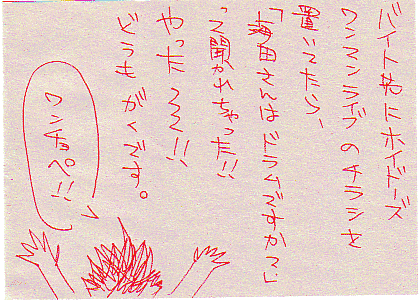 バイト先にホイドーズ
ワンマンライブのチラシを
置いてたら、
「梅田さんはドラムですか?」
って聞かれちゃった!!
やった〜〜!!
どうもがくです。
ワンチョペ!!